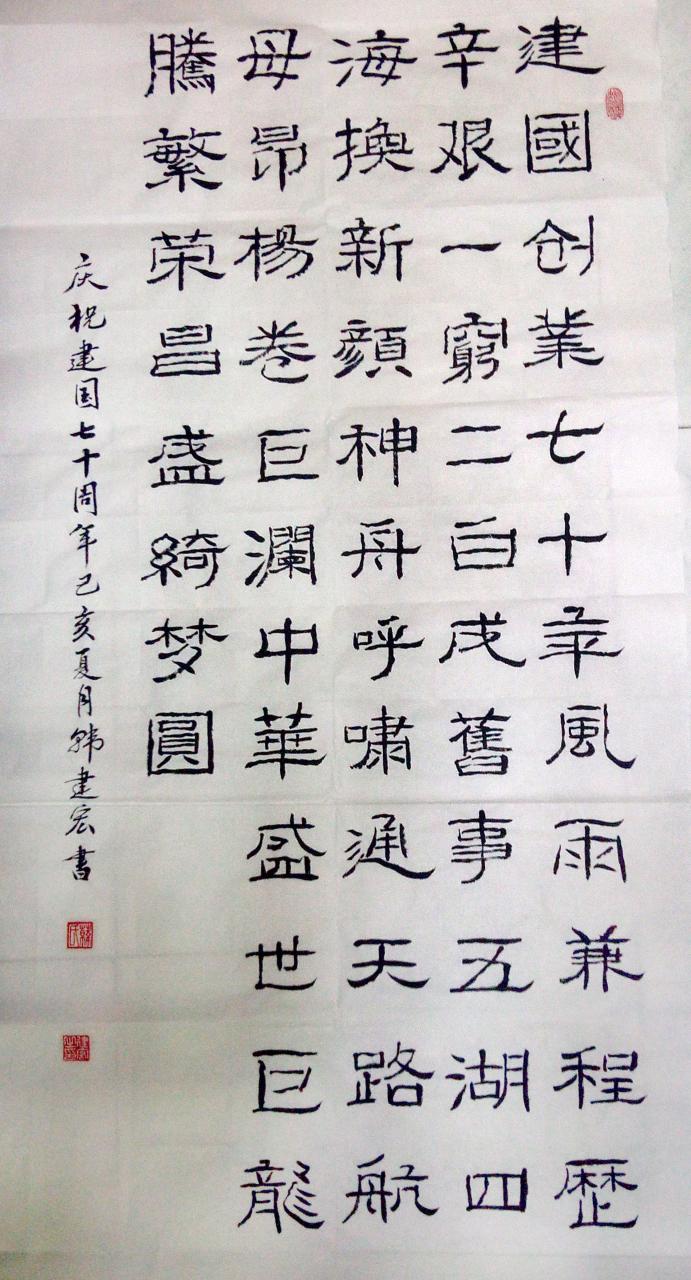 建國创業七十年風雨兼程歴
辛艰一窮二白成舊事五湖四
海換新顔神舟呼嘯通天路航
母昂楊卷巨瀾中華盛世巨龍
騰繁荣昌盛綺梦圓
庆祝建国七十周年己亥夏月韩建宏書